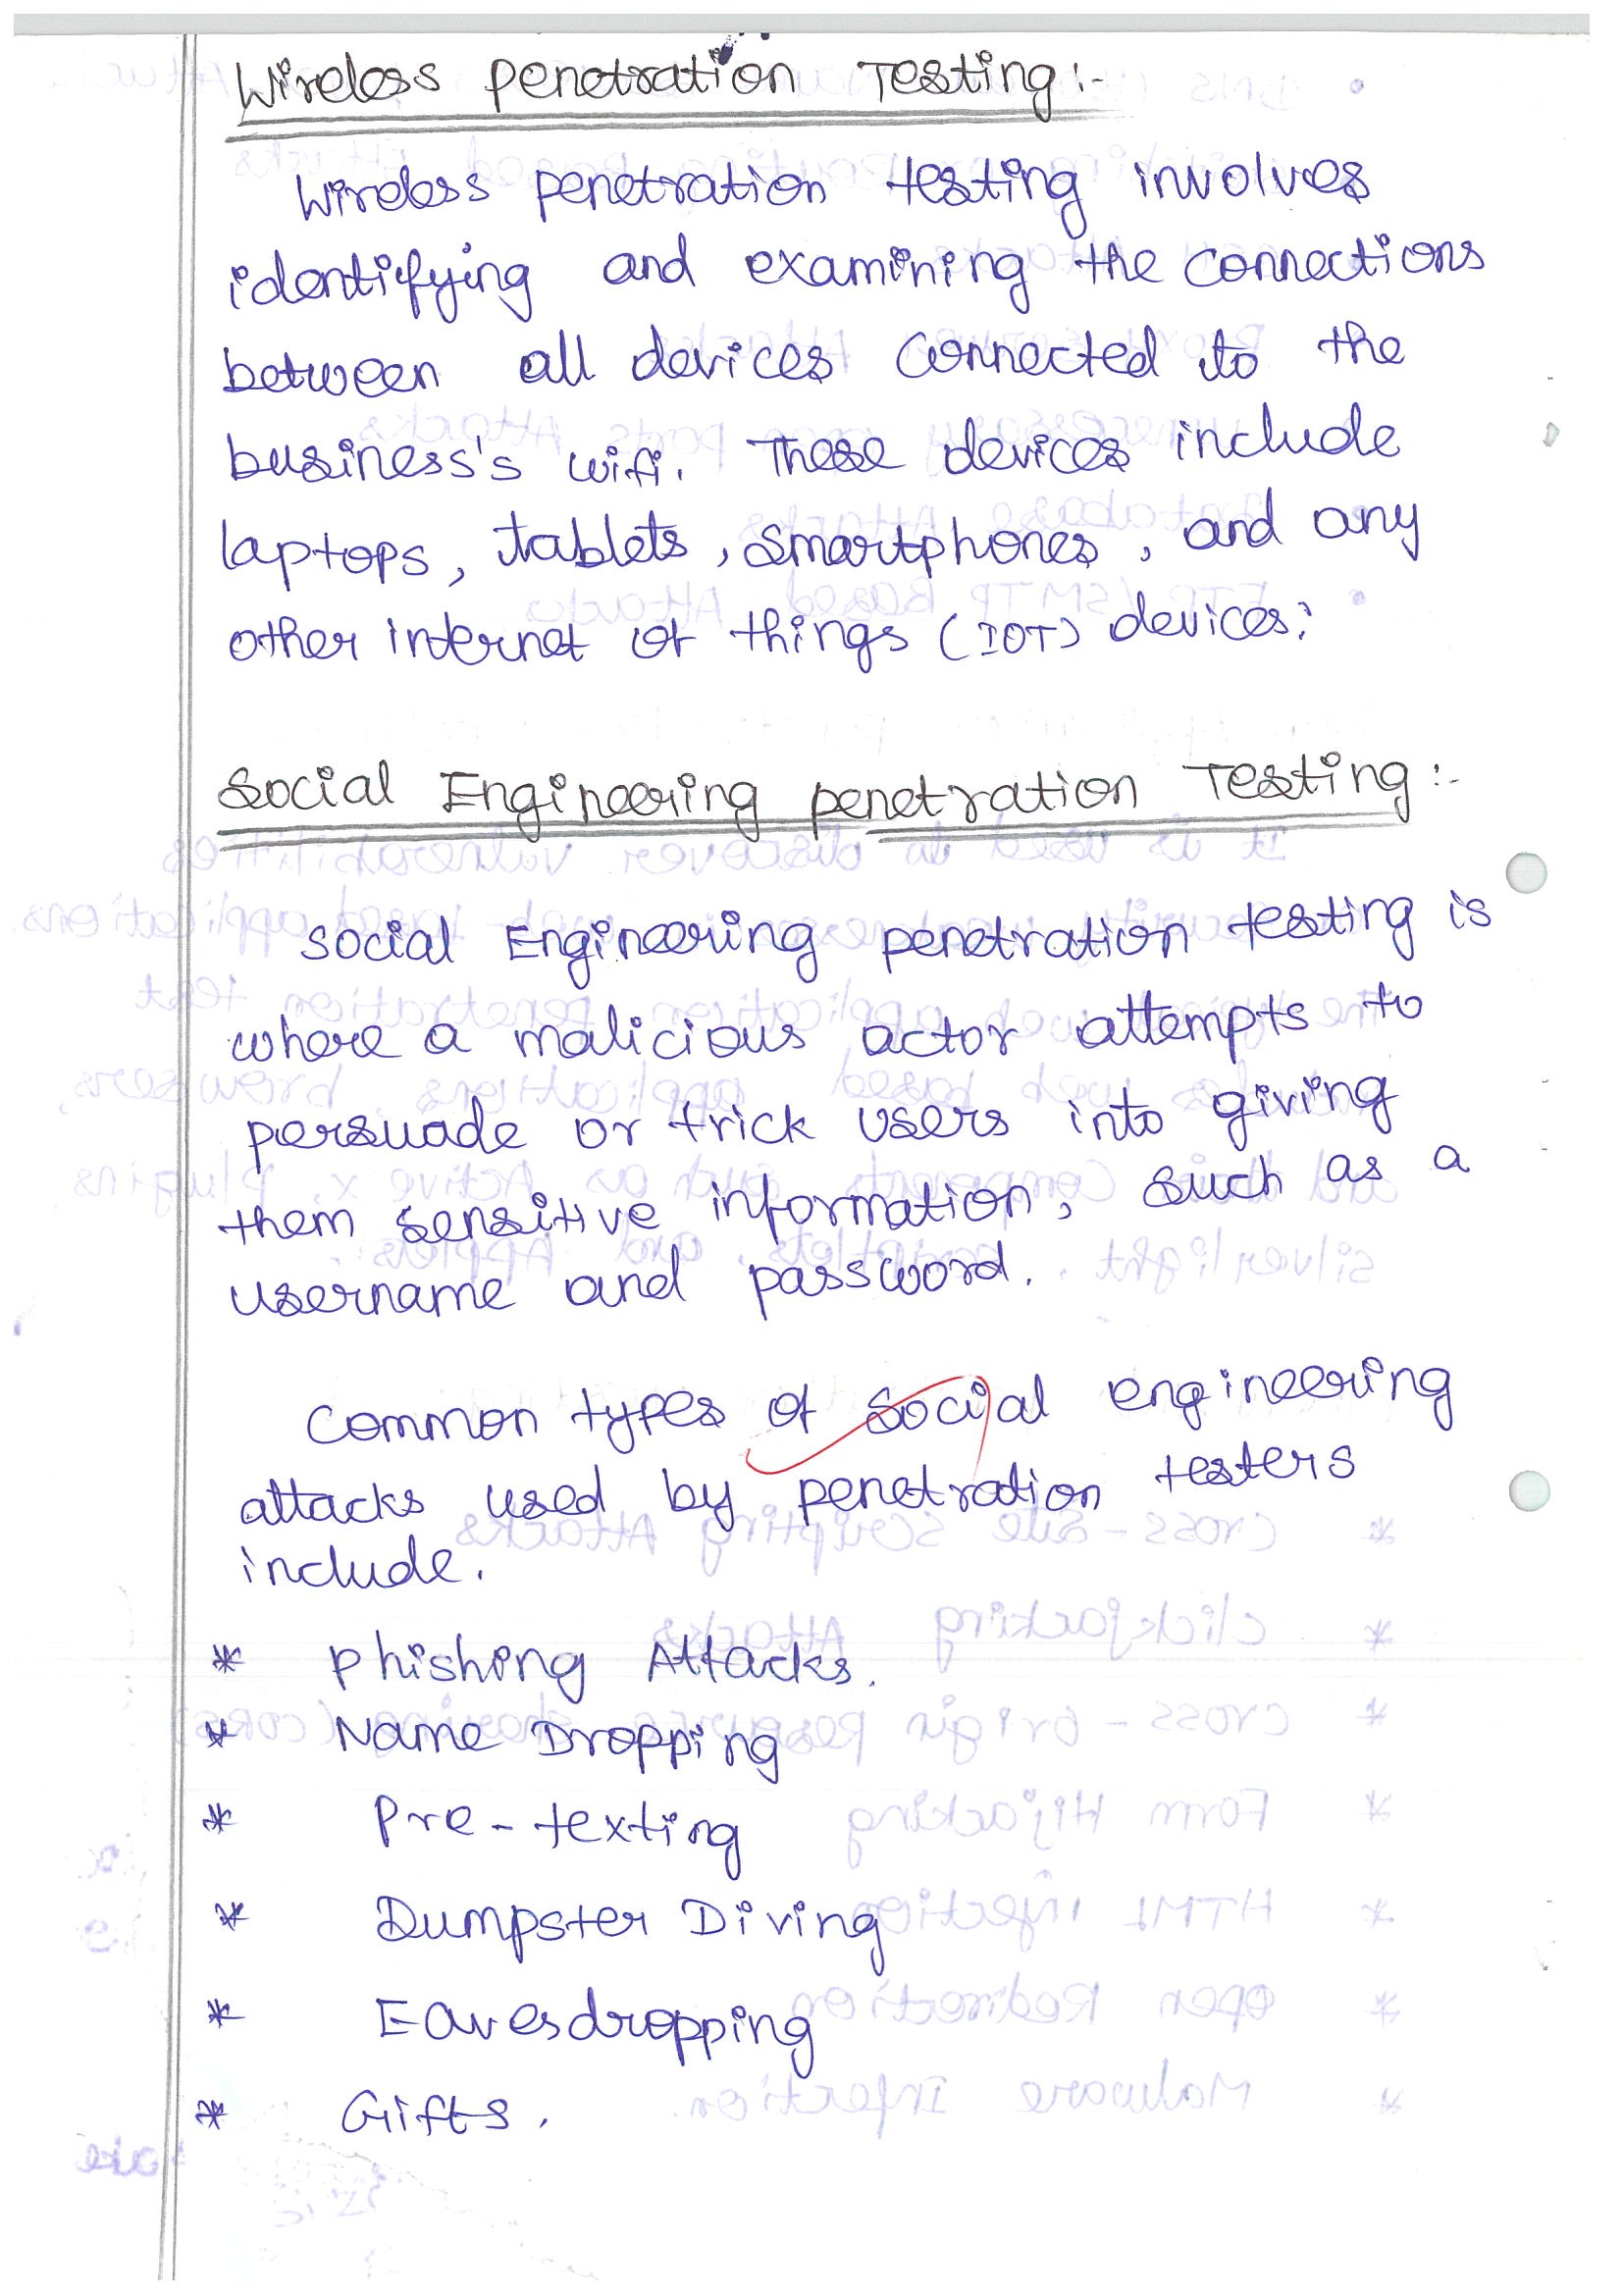 Wireless penetration Testing :-
Wireless penetration testing involves
identifying and examining the connections
between all devices connected to the
business's wifi. These devices include
laptops, tablets, smartphones, and any
other internet of things (IOT) devices.
Social Engineering penetration Testing :-
Social Engineering penetration testing is
where a malicious actor attempts to
persuade or trick users into giving
them sensitive information, such as a
username and password.
Common types of social engineering
attacks used by penetration testers
include.
* Phishing Attacks.
* Name Dropping
* Pre-texting
* Dumpster Diving
* Eavesdropping
* Gifts.